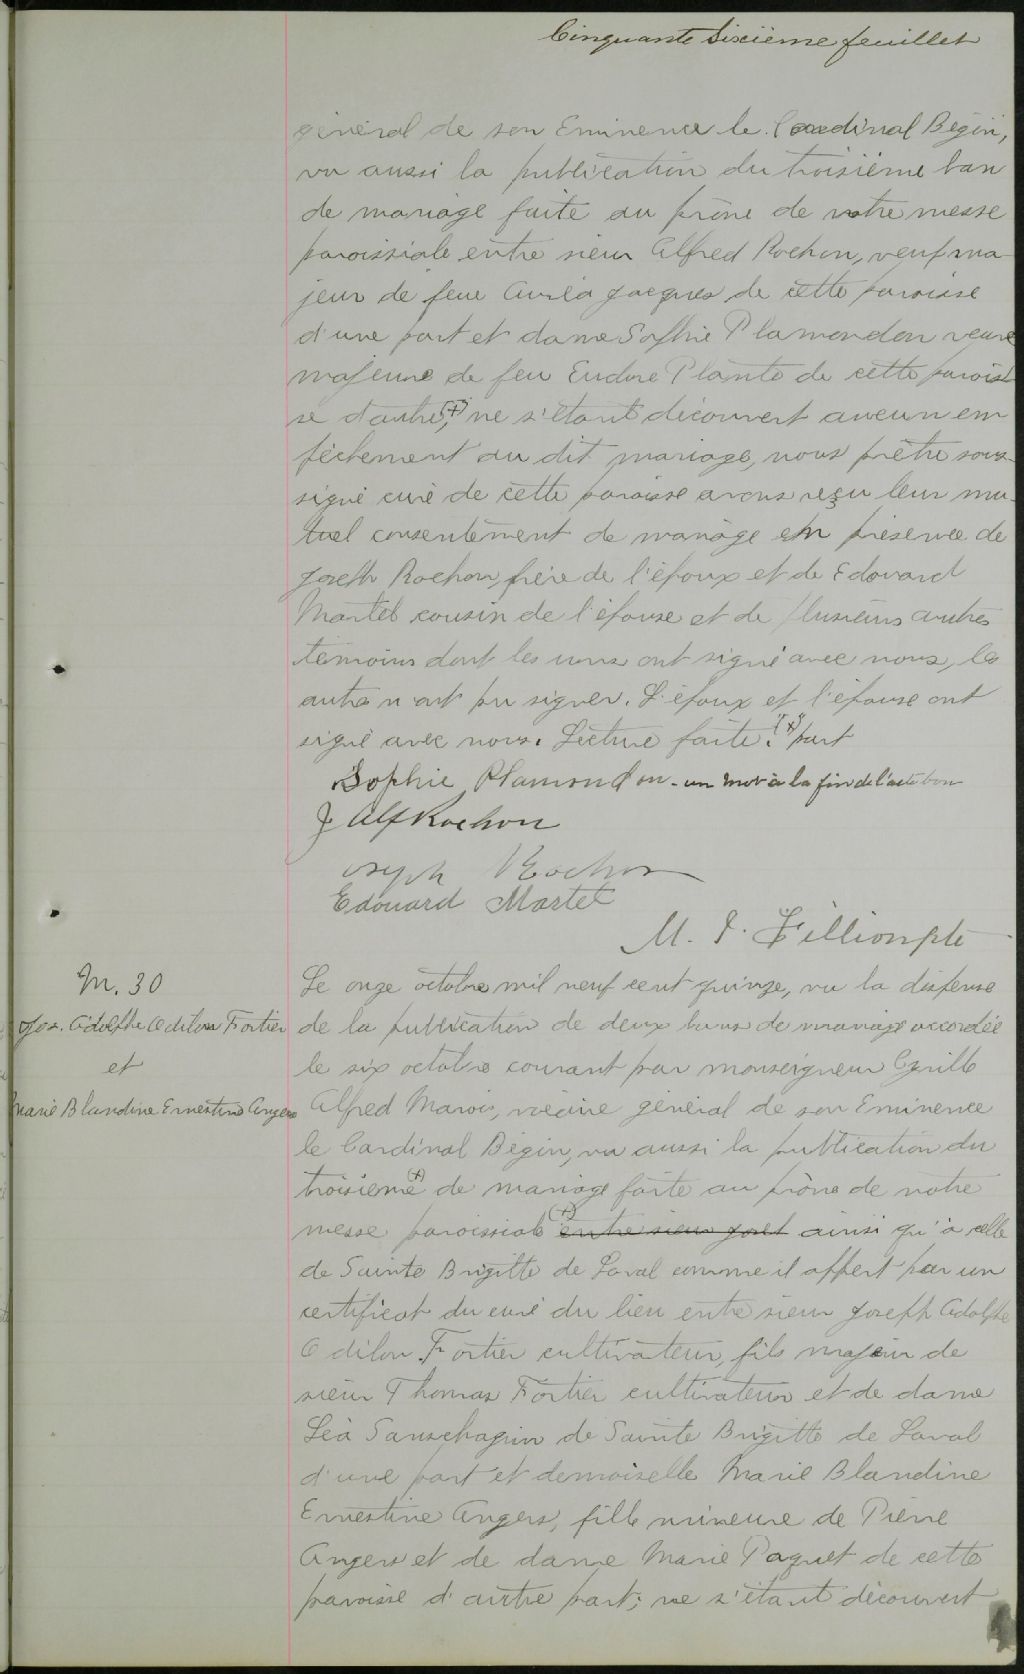 Cinquante Sixième feuillet
général de son Eminence le Cardinal Bégin,
vu aussi la publication du troisième ban
de mariage faite au prône de notre messe
paroissiale entre sieur Alfred Rochon, veuf ma-
jeur de feue Auréa Jacques de cette paroisse
d'une part et dame Sophie Plamondon veuve
majeure de feu Eudore Plante de cette parois-
se d'autre, (+) ne s'étant découvert aucun em-
pêchement au dit mariage, nous prêtre sous-
signé curé de cette paroisse avons reçu leur mu-
tuel consentement de mariage en présence de
Joseph Rochon, frère de l'époux et de Edouard
Martel cousin de l'épouse et de plusieurs autres
témoins dont les uns ont signé avec nous, les
autres n'ont pu signer. L'époux et l'épouse ont
signé avec nous. Lecture faite. (+) part
Sophie Plamondon - un mot à la fin de l'acte bon
J Alf Rochon
Joseph Rochon
Edouard Martel
M. J. Fillion ptre
M. 30
Jos. Adolphe Odilon Fortier
et
Marie Blandine Ernestine Angers
Le onze octobre mil neuf cent quinze, vu la dispense
de la publication de deux bans de mariage accordée
le six octobre courant par monseigneur Cyrille
Alfred Marois, vicaire général de son Eminence
le Cardinal Bégin, vu aussi la publication du
troisième (+) de mariage faite au prône de notre
messe paroissiale (+) entre sieur Josel ainsi qu'à celle
de Sainte Brigitte de Laval comme il appert par un
certificat du curé du lieu entre sieur Joseph Adolphe
Odilon Fortier cultivateur, fils majeur de
sieur Thomas Fortier cultivateur et de dame
Léa Sanschagrin de Sainte Brigitte de Laval
d'une part et demoiselle Marie Blandine
Ernestine Angers, fille mineure de Pierre
Angers et de dame Marie Paquet de cette
paroisse d'autre part; ne s'étant découvert